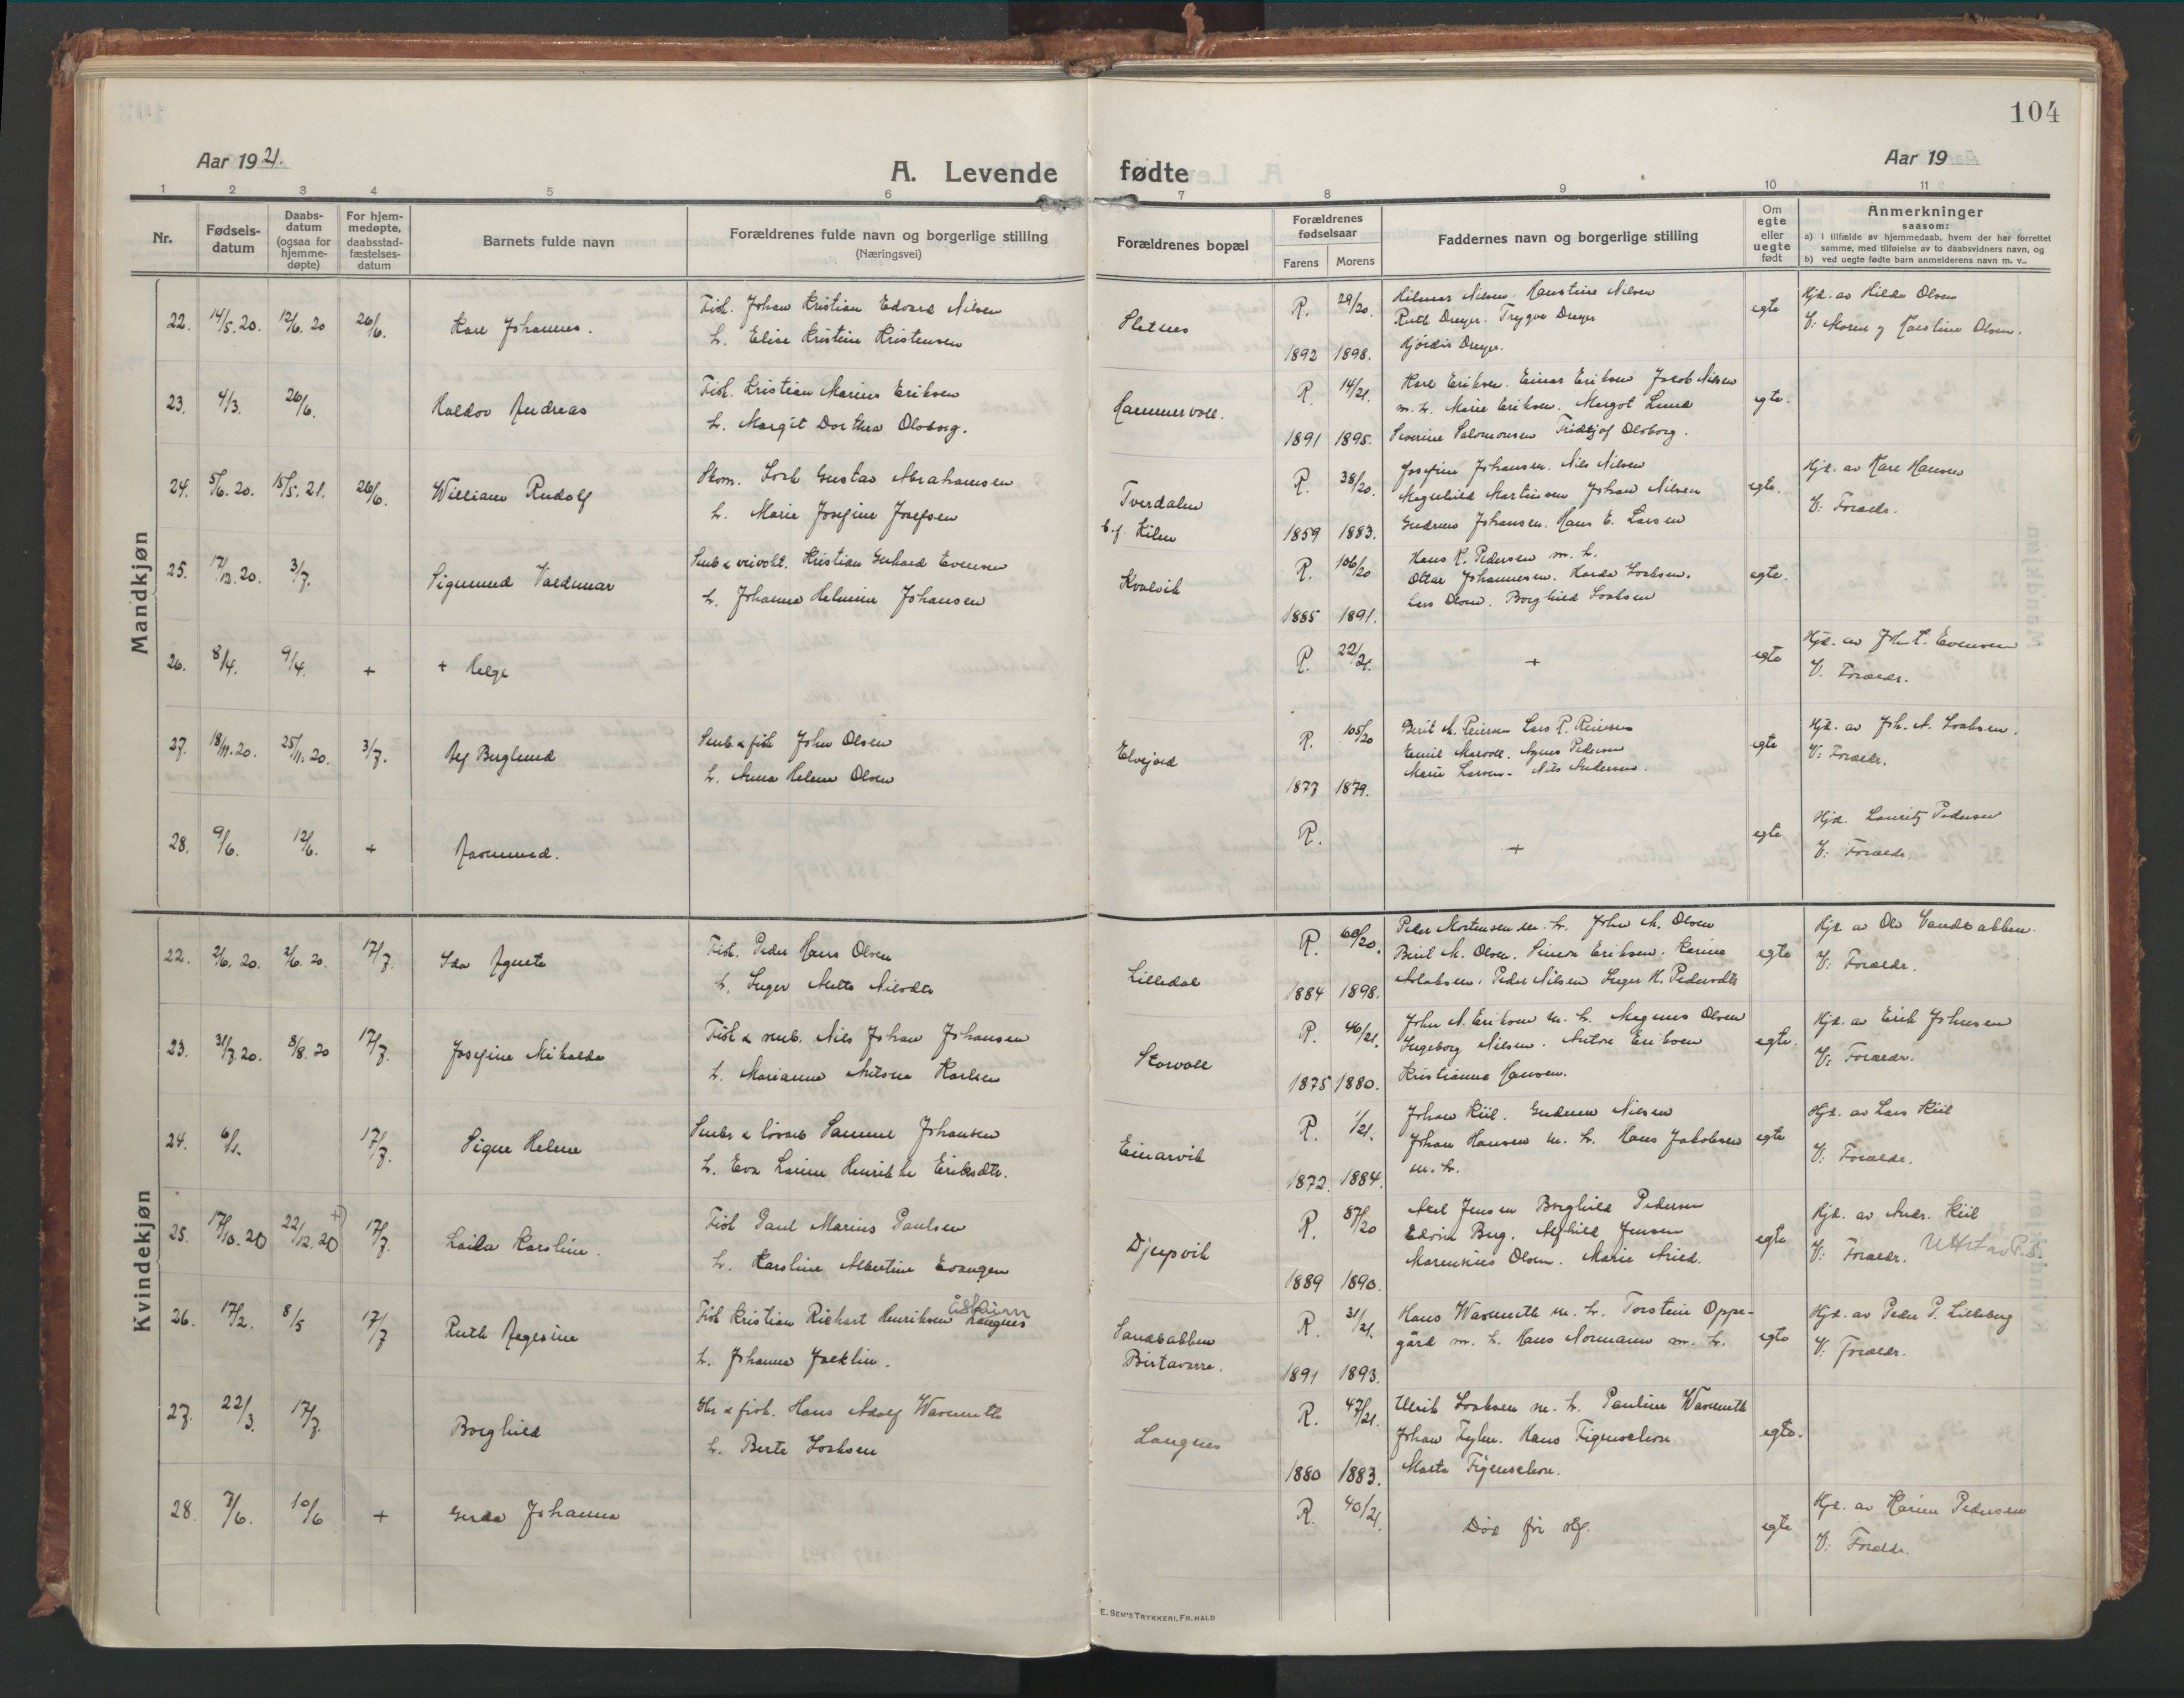 104
Aar 1921.
A. Levende fødte
Aar 19
1 2 3 4 5 6 7 8 9 10 11
Nr.
Fødsels-
datum
Daabs-
datum
(ogsaa for
hjemme-
døpte)
For hjem-
medøpte,
daabsstad-
fæstelses-
datum
Barnets fulde navn
Forældrenes fulde navn og borgerlige stilling
(Næringsvei)
Forældrenes bopæl
Forældrenes
fødselsaar
Farens Morens
Faddernes navn og borgerlige stilling
Om
egte
eller
uegte
født
Anmerkninger
saasom:
a) i tilfælde av hjemmedaab, hvem der har forrettet
samme, med tilføielse av to daabsvidners navn, og
b) ved uegte fødte barn anmelderens navn m. v..
Mandkjøn
22. 14/5. 20. 12/6. 20 26/6. Kare Johannes.
Fisk. Johan Kristian Edvard Nilsen
h. Elise Kristine Kristensen
Sletnes
R. 29/20.
1892 1898.
Hilmar Nilsen. Hanstine Nilsen
Ruth Dreyer. Trygve Dreyer
Hjördis Dreyer.
egte
Hjd. av Hilda Olsen
V: Maren og Karstine Olsen.
23. 4/3. 26/6. Haldor Andreas
Fisk. Kristian Marius Eriksen
h. Margit Dorthea Olsborg.
Hammervoll.
R. 14/21.
1891 1895.
Karl Eriksen. Einar Eriksen Jacob Nilsen
m. h. Marie Eriksen. Margot Lund
Severine Salomonsen Fridtjof Olsborg.
egte.
24. 5/6. 20. 15/5. 21. 26/6. William Rudolf
Skom. Gustav Abrahamsen
h. Marie Josefine Josefsen
Tverdalen
b. f. Kilen
R. 38/20.
1859 1883.
Josefine Johansen. Nils Nilsen
Magnhild Martinsen Johan Nilsen
Gudrun Johansen. Hans E. Larsen
egte.
Hjd. av Kare Hansen
V: Forældr.
25. 17/12. 20. 3/7. Sigmund Valdemar
Smb & veivokt. Kristian Gerhard Evensen
h. Johanna Helmine Johansen
Kvalvik
R. 106/20
1885 1891.
Hans R. Pedersen m. h.
Ottar Johannesen. Harda Isaksen.
Lars Olsen. Borghild Isaksen
egte.
26. 8/4. 9/4. + + Helge
R. 22/21.
+
egte
Hjd. av Joh. E. Evensen
V. Forældr.
27. 18/11. 20. 25/11. 20. 3/7. Alf Berglund
Smb & fisk John Olsen
h. Anna Helene Olsen
Elvejord
R. 105/20
1877 1879.
Berit M. Reiersen Lars P. Reiersen
Emil Marvoll. Agnes Pedersen
Marie Larsen. Nils Andersen.
egte
Hjd. av Joh. A. Isaksen.
V: Forældr.
28. 9/6. 12/6. + Aasmund.
R.
+
egte
Hjd. Lauritz Pedersen
V: Forældr.
Kvindekjøn
22. 2/6. 20. 2/6. 20. 17/7. Ida Agnete
Fisk. Peder Hans Olsen
h. Inger Mette Nilsdtr
Lilledal
R. 60/20.
1884 1898.
Peder Mortensen m. h. John M. Olsen
Berit M. Olsen. Simon Eriksen. Karine
Aslaksen. Peder Nilsen Inger H. Pedersdtr
egte
Hjd av Ole Sandbakken.
V: Forældr.
23. 31/7. 20. 8/8. 20 17/7. Josefine Mikalda
Fisk & smb. Nils Johan Johansen
h. Marianne Antona Karlsen
Storvoll
R. 46/21.
1875 1880.
John N. Eriksen m. h. Magnus Olsen
Ingeborg Nilsen. Anton Eriksen
Kristianna Hansen.
egte.
Hjd. av Erik Johnsen
V: Forældr.
24. 6/1. 17/7. Signe Helene
Smbr & Samuel Johansen
h. Eva Larine Henrikke Eriksdtr.
Einarvik
R. 1/21.
1872. 1884.
Johan Kiil. Gudrun Nilsen
Johan Hansen m. h. Hans Jakobsen
m. h.
egte
Hjd. av Lars Kiil
V: Forældr.
25. 17/10. 20 22/12. 20 +) 17/7. Laila Karoline.
Fisk Paul Marius Paulsen
h. Karoline Albertine Evangen
Djupvik
R. 87/20
1889 1890.
Axel Jensen Borghild Pedersen
Edvin Berg. Alfhild Jensen
Marenius Olsen. Marie Arild.
egte
Hjd. av Andr. Kiil
V: Forældr. Utst av P. S.
26. 17/2. 8/5 17/7 Ruth Aagesine
Fisk Kristian Richart Henriksen Langnes
h. Johanna Jacklin.
Sandbakken
Birtavarre.
R. 31/21.
1891 1893.
Hans Wasmuth m. h. Torstein Oppe-
gård m. h. Hans Normann m. h.
egte
Hjd. av Peder P. Lilleberg
V: Forældr.
27. 22/3. 17/7. Borghild
Gbr & fisk. Hans Adolf Wasmuth
h. Berte Isaksen
Langnes
R. 47/21.
1880 1883.
Ulrik Isaksen m. h. Pauline Wasmuth
Johan Fyhn. Hans Figenschou
Marta Figenschou.
egte.
28. 7/6. 10/6 + Gerda Johanna
R. 40/21.
Död før stf.
egte
Hjd. av Karen Pedersen
V: Forældr.
E. SEM'S TRYKKERI, FR.HALD